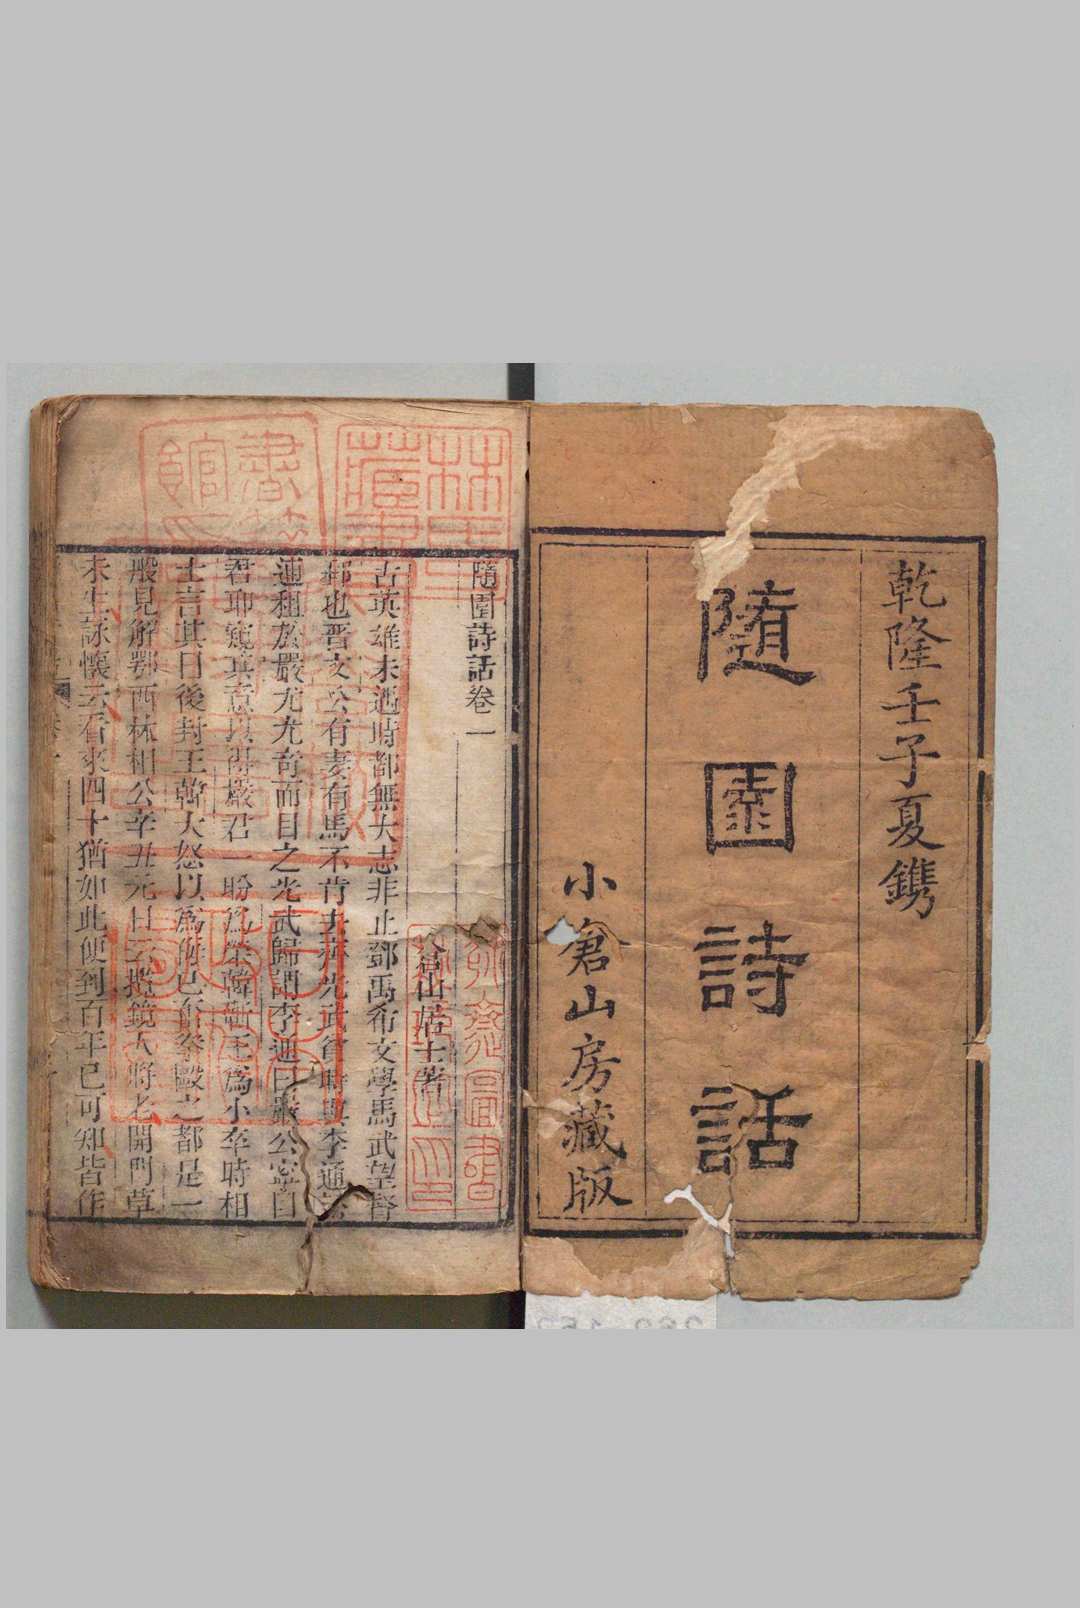 乾隆壬子夏鐫
隨園詩話
小倉山房藏版
隨園詩話卷一
倉山居士著
古英雄未遇時都無大志非止鄧禹希文學馬武望督
郵也晉文公有妻有馬不肯去齊光武貧時與李通訟
逋租於嚴尤尤奇而目之光武歸謂李通曰嚴公寧目
君耶窺其意以得嚴君一盼為榮韓蘄王為小卒時相
士言其日後封王韓大怒以為侮己奮拳毆之都是一
般見解鄂西林相公辛丑元日云攬鏡人將老開門草
未生詠懷云看來四十猶如此便到百年已可知皆作